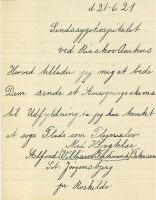 d 21-6.21
Sindssygehospitalet
ved Risskov Aarhus
Herved tillader jeg mig at bede
Dem sende et Ansøgningsskema
til Udfyldning, da jeg har tænkt
at søge Plads som Plejeelev
Med Højagtelse
Alfred William Petersen
Sct. Jørgensbjerg
pr Roskilde